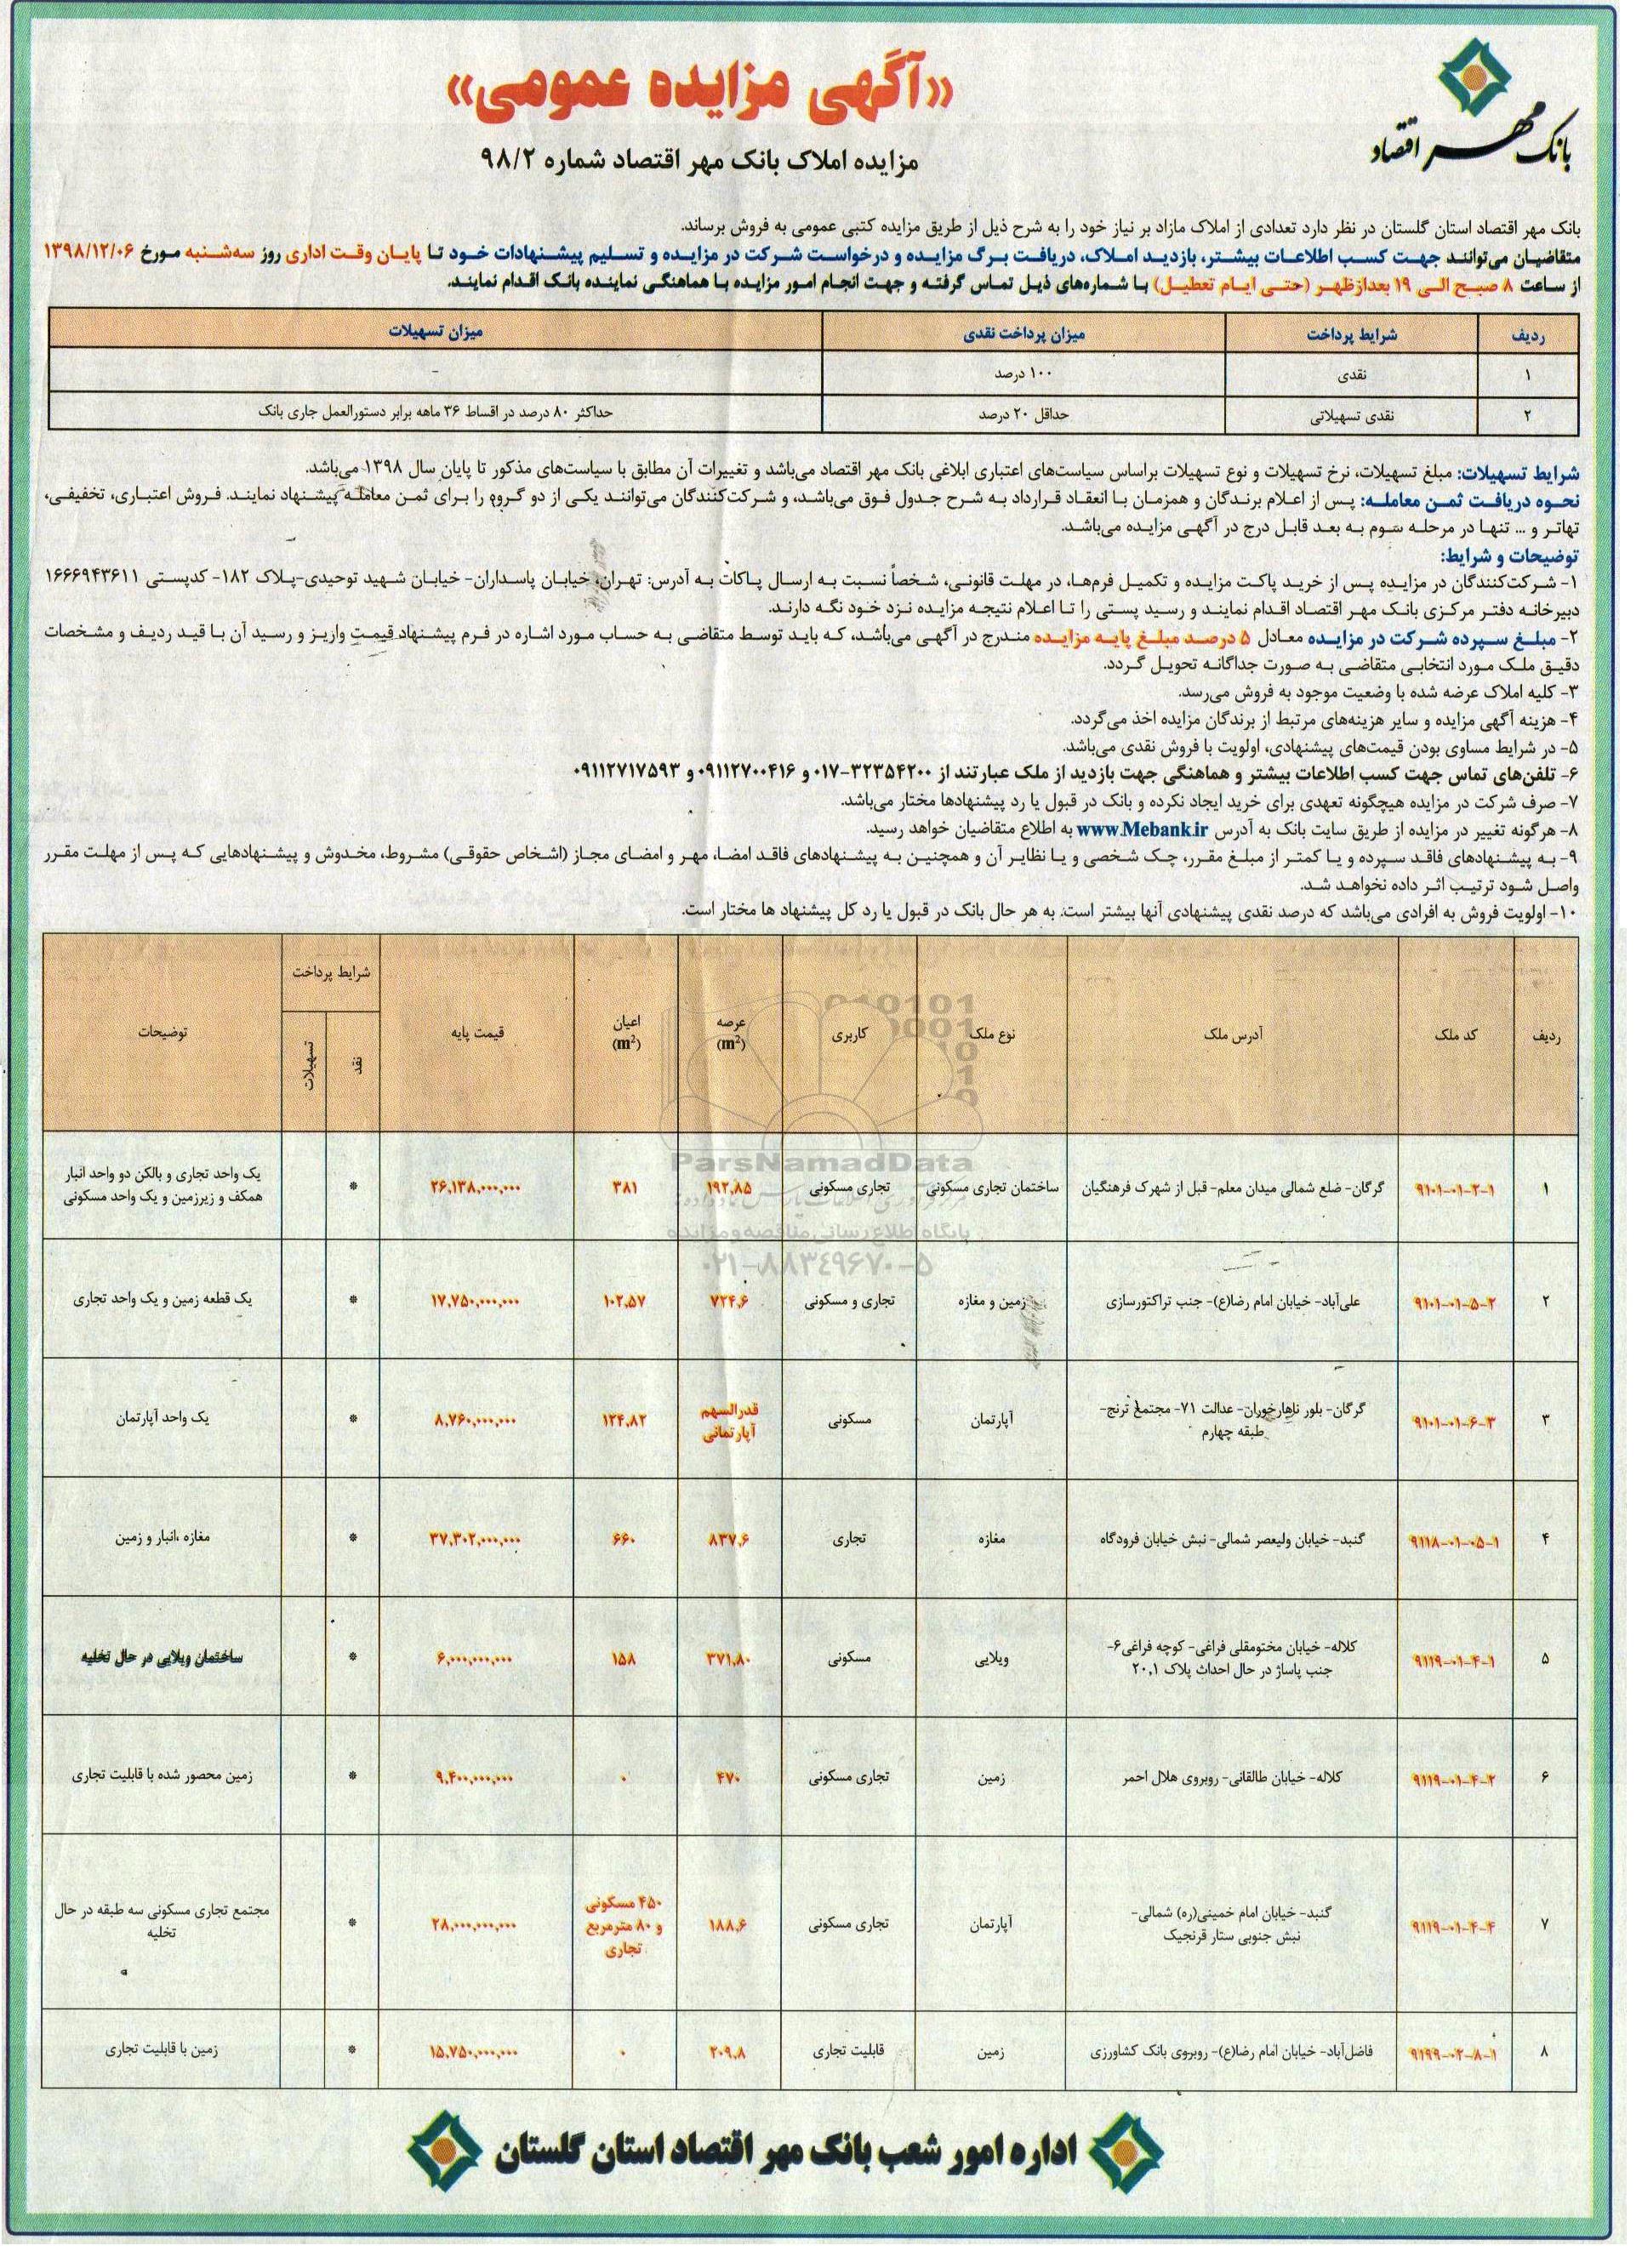 بانک مهر اقتصاد
«آگهی مزایده عمومی»
مزایده املاک بانک مهر اقتصاد شماره ۹۸/۲
بانک مهر اقتصاد استان گلستان در نظر دارد تعدادی از املاک مازاد بر نیاز خود را به شرح ذیل از طریق مزایده کتبی عمومی به فروش برساند.
متقاضیان می‌توانند جهت کسب اطلاعات بیشتر، بازدید املاک، دریافت برگ مزایده و درخواست شرکت در مزایده و تسلیم پیشنهادات خود تا پایان وقت اداری روز سه‌شنبه مورخ ۱۳۹۸/۱۲/۰۶
از ساعت ۸ صبح الی ۱۹ بعدازظهر (حتی ایام تعطیل) با شماره‌های ذیل تماس گرفته و جهت انجام امور مزایده با هماهنگی نماینده بانک اقدام نمایند.
ردیف شرایط پرداخت میزان پرداخت نقدی میزان تسهیلات
۱ نقدی ۱۰۰ درصد -
۲ نقدی تسهیلاتی حداقل ۲۰ درصد حداکثر ۸۰ درصد در اقساط ۳۶ ماهه برابر دستورالعمل جاری بانک
شرایط تسهیلات: مبلغ تسهیلات، نرخ تسهیلات و نوع تسهیلات براساس سیاست‌های اعتباری ابلاغی بانک مهر اقتصاد می‌باشد و تغییرات آن مطابق با سیاست‌های مذکور تا پایان سال ۱۳۹۸ می‌باشد.
نحوه دریافت ثمن معامله: پس از اعلام برندگان و همزمان با انعقاد قرارداد به شرح جدول فوق می‌باشد، و شرکت‌کنندگان می‌توانند یکی از دو گروه را برای ثمن معامله پیشنهاد نمایند. فروش اعتباری، تخفیفی،
تهاتر و ... تنها در مرحله سوم به بعد قابل درج در آگهی مزایده می‌باشد.
توضیحات و شرایط:
۱- شرکت‌کنندگان در مزایده پس از خرید پاکت مزایده و تکمیل فرم‌ها، در مهلت قانونی، شخصاً نسبت به ارسال پاکات به آدرس: تهران، خیابان پاسداران- خیابان شهید توحیدی-پلاک ۱۸۲- کدپستی ۱۶۶۶۹۴۳۶۱۱
دبیرخانه دفتر مرکزی بانک مهر اقتصاد اقدام نمایند و رسید پستی را تا اعلام نتیجه مزایده نزد خود نگه دارند.
۲- مبلغ سپرده شرکت در مزایده معادل ۵ درصد مبلغ پایه مزایده مندرج در آگهی می‌باشد، که باید توسط متقاضی به حساب مورد اشاره در فرم پیشنهاد قیمت واریز و رسید آن با قید ردیف و مشخصات
دقیق ملک مورد انتخابی متقاضی به صورت جداگانه تحویل گردد.
۳- کلیه املاک عرضه شده با وضعیت موجود به فروش می‌رسد.
۴- هزینه آگهی مزایده و سایر هزینه‌های مرتبط از برندگان مزایده اخذ می‌گردد.
۵- در شرایط مساوی بودن قیمت‌های پیشنهادی، اولویت با فروش نقدی می‌باشد.
۶- تلفن‌های تماس جهت کسب اطلاعات بیشتر و هماهنگی جهت بازدید از ملک عبارتند از ۳۲۳۵۴۲۰۰-۰۱۷ و ۰۹۱۱۲۷۰۰۴۱۶ و ۰۹۱۱۲۷۱۷۵۹۳
۷- صرف شرکت در مزایده هیچگونه تعهدی برای خرید ایجاد نکرده و بانک در قبول یا رد پیشنهادها مختار می‌باشد.
۸- هرگونه تغییر در مزایده از طریق سایت بانک به آدرس www.Mebank.ir به اطلاع متقاضیان خواهد رسید.
۹- به پیشنهادهای فاقد سپرده و یا کمتر از مبلغ مقرر، چک شخصی و یا نظایر آن و همچنین به پیشنهادهای فاقد امضا، مهر و امضای مجاز (اشخاص حقوقی) مشروط، مخدوش و پیشنهادهایی که پس از مهلت مقرر
واصل شود ترتیب اثر داده نخواهد شد.
۱۰- اولویت فروش به افرادی می‌باشد که درصد نقدی پیشنهادی آنها بیشتر است. به هر حال بانک در قبول یا رد کل پیشنهاد ها مختار است.
ردیف کد ملک آدرس ملک نوع ملک کاربری عرصه (m²) اعیان (m²) قیمت پایه شرایط پرداخت نقد تسهیلات توضیحات
۱ ۹۱۰۱-۰۱-۲-۱ گرگان- ضلع شمالی میدان معلم- قبل از شهرک فرهنگیان ساختمان تجاری مسکونی تجاری مسکونی ۱۹۲,۸۵ ۳۸۱ ۲۶,۱۳۸,۰۰۰,۰۰۰ * یک واحد تجاری و بالکن دو واحد انبار
همکف و زیرزمین و یک واحد مسکونی
۲ ۹۱۰۱-۰۱-۵-۲ علی‌آباد- خیابان امام رضا(ع)- جنب تراکتورسازی زمین و مغازه تجاری و مسکونی ۷۲۴,۶ ۱۰۲,۵۷ ۱۷,۷۵۰,۰۰۰,۰۰۰ * یک قطعه زمین و یک واحد تجاری
۳ ۹۱۰۱-۰۱-۶-۳ گرگان- بلور ناهارخوران- عدالت ۷۱- مجتمع ترنج-
طبقه چهارم آپارتمان مسکونی قدرالسهم
آپارتمانی ۱۲۴,۸۲ ۸,۷۶۰,۰۰۰,۰۰۰ * یک واحد آپارتمان
۴ ۹۱۱۸-۰۱-۰۵-۱ گنبد- خیابان ولیعصر شمالی- نبش خیابان فرودگاه مغازه تجاری ۸۳۷,۶ ۶۶۰ ۳۷,۳۰۲,۰۰۰,۰۰۰ * مغازه ،انبار و زمین
۵ ۹۱۱۹-۰۱-۴-۱ کلاله- خیابان مختومقلی فراغی- کوچه فراغی۶-
جنب پاساژ در حال احداث پلاک ۲۰,۱ ویلایی مسکونی ۳۷۱,۸۰ ۱۵۸ ۶,۰۰۰,۰۰۰,۰۰۰ * ساختمان ویلایی در حال تخلیه
۶ ۹۱۱۹-۰۱-۴-۲ کلاله- خیابان طالقانی- روبروی هلال احمر زمین تجاری مسکونی ۴۷۰ ۰ ۹,۴۰۰,۰۰۰,۰۰۰ * زمین محصور شده با قابلیت تجاری
۷ ۹۱۱۹-۰۱-۴-۴ گنبد- خیابان امام خمینی(ره) شمالی-
نبش جنوبی ستار قرنجیک آپارتمان تجاری مسکونی ۱۸۸,۶ ۴۵۰ مسکونی
و ۸۰ مترمربع
تجاری ۲۸,۰۰۰,۰۰۰,۰۰۰ * مجتمع تجاری مسکونی سه طبقه در حال
تخلیه
۸ ۹۱۹۹-۰۲-۸-۱ فاضل‌آباد- خیابان امام رضا(ع)- روبروی بانک کشاورزی زمین قابلیت تجاری ۲۰۹,۸ ۰ ۱۵,۷۵۰,۰۰۰,۰۰۰ * زمین با قابلیت تجاری
ParsNamadData
پایگاه اطلاع رسانی مناقصه و مزایده
۰۲۱-۸۸۳۴۹۶۷۰-۵
اداره امور شعب بانک مهر اقتصاد استان گلستان